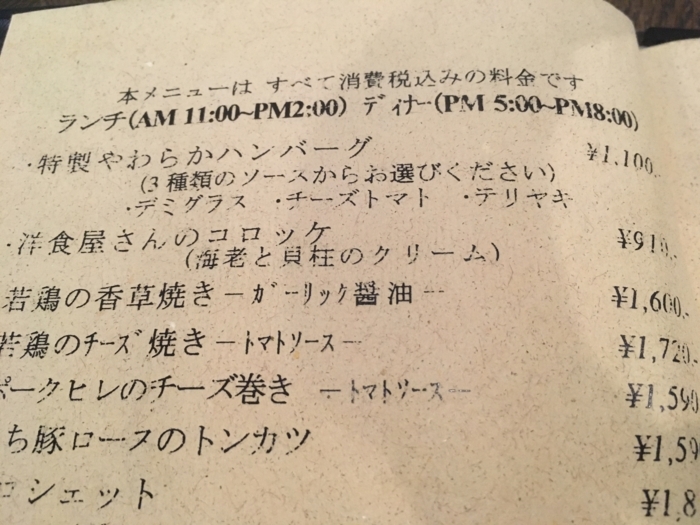 本メニューは すべて消費税込みの料金です
ランチ(AM 11:00~PM2:00) ディナー(PM 5:00~PM8:00)
・特製やわらかハンバーグ ¥1,100.
(3種類のソースからお選びください)
・デミグラス ・チーズトマト ・テリヤキ
・洋食屋さんのコロッケ ¥910.
(海老と貝柱のクリーム)
若鶏の香草焼き－ガーリック醤油－ ¥1,600.
若鶏のチーズ焼き－トマトソース－ ¥1,720.
ポークヒレのチーズ巻き －トマトソース－ ¥1,590
ち豚ロースのトンカツ ¥1,59
ロシェット ¥1,8